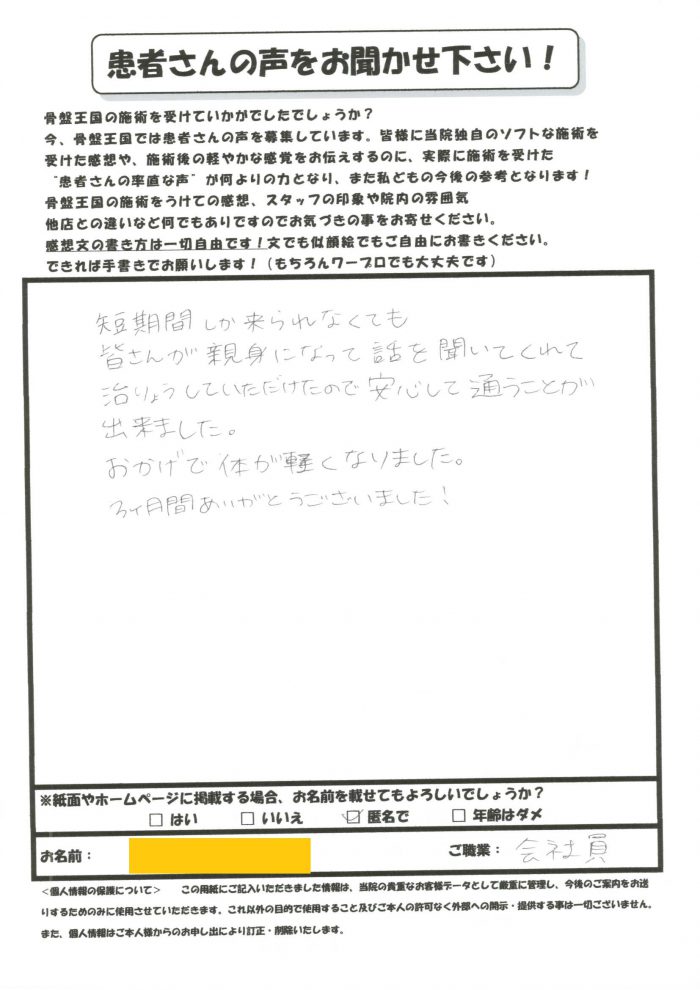 患者さんの声をお聞かせ下さい！
骨盤王国の施術を受けていかがでしたでしょうか？
今、骨盤王国では患者さんの声を募集しています。皆様に当院独自のソフトな施術を
受けた感想や、施術後の軽やかな感覚をお伝えするのに、実際に施術を受けた
“患者さんの率直な声”が何よりの力となり、また私どもの今後の参考となります！
骨盤王国の施術をうけての感想、スタッフの印象や院内の雰囲気
他店との違いなど何でもありですのでお気づきの事をお寄せください。
感想文の書き方は一切自由です！文でも似顔絵でもご自由にお書きください。
できれば手書きでお願いします！（もちろんワープロでも大丈夫です）
短期間しか来られなくても
皆さんが親身になって話を聞いてくれて
治りょうしていただけたので安心して通うことが
出来ました。
おかげで体が軽くなりました。
3ヶ月間ありがとうございました！
※紙面やホームページに掲載する場合、お名前を載せてもよろしいでしょうか？
□ はい □ いいえ ☑ 匿名で □ 年齢はダメ
お名前： ご職業： 会社員
＜個人情報の保護について＞ この用紙にご記入いただきました情報は、当院の貴重なお客様データとして厳重に管理し、今後のご案内をお送
りするためのみに使用させていただきます。これ以外の目的で使用すること及びご本人の許可なく外部への開示・提供する事は一切ございません。
また、個人情報はご本人様からのお申し出により訂正・削除いたします。